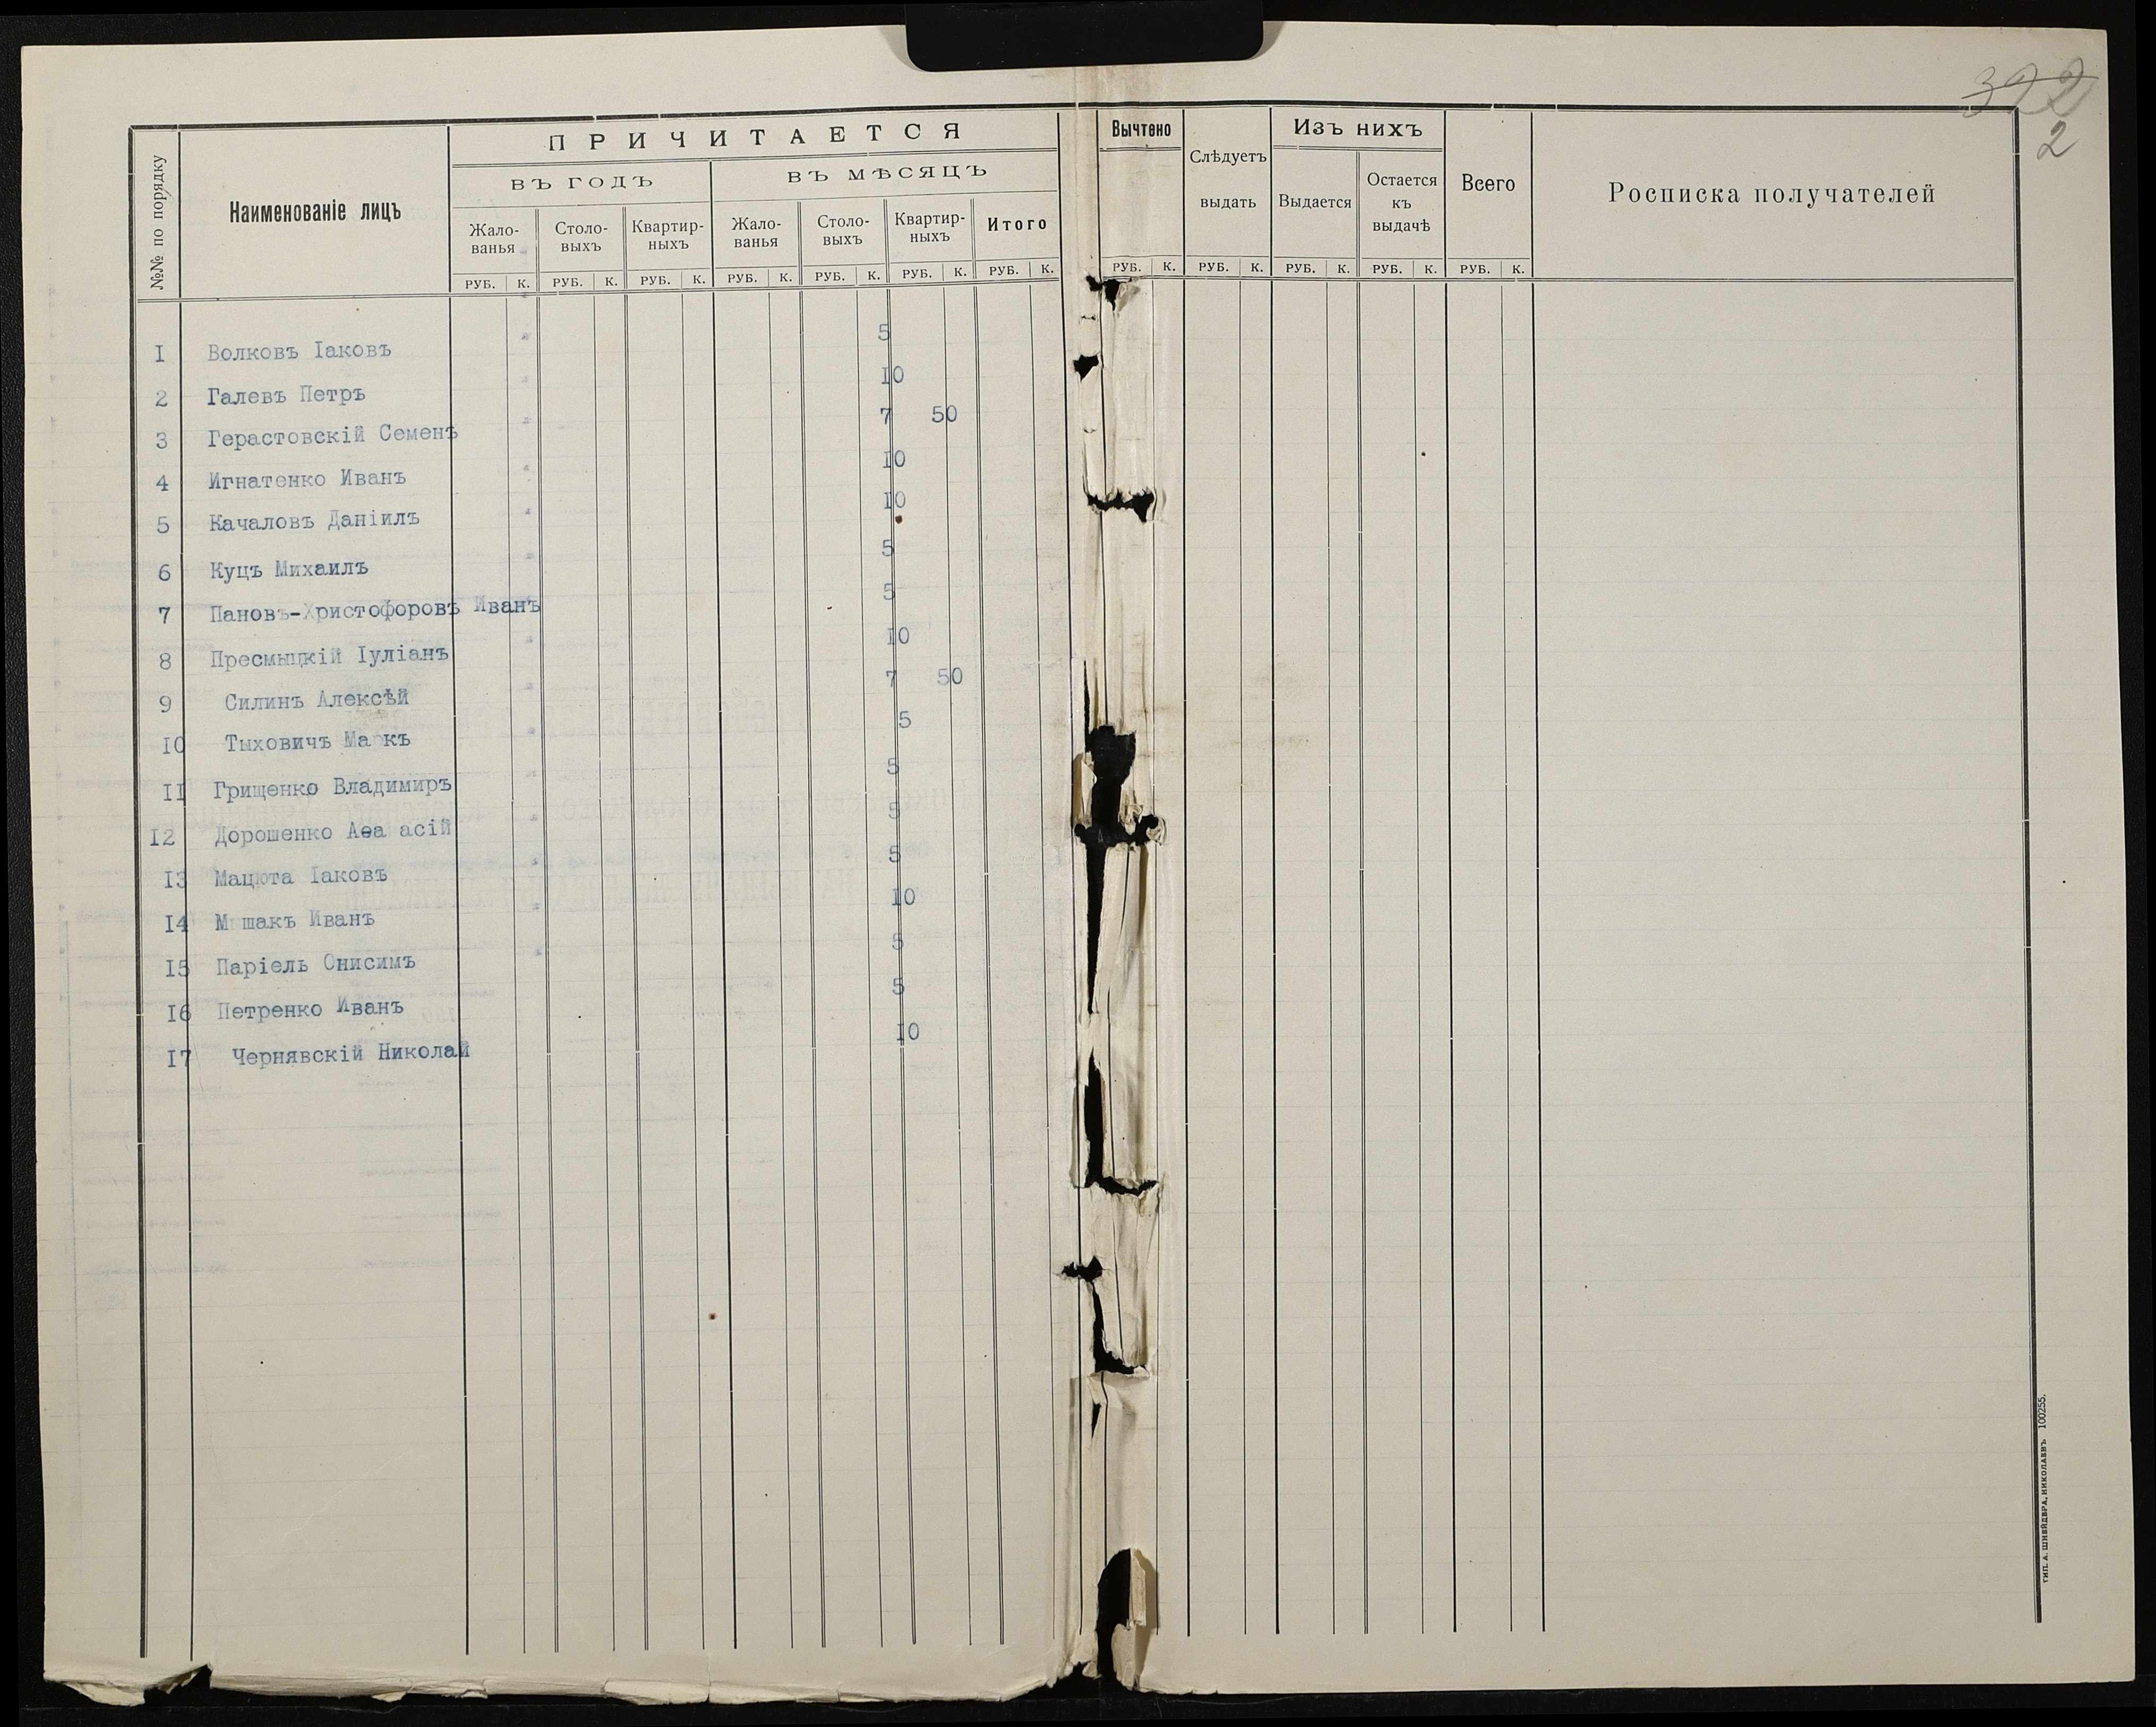 322
2
ПРИЧИТАЕТСЯ
Вычтено
Изъ нихъ
№№ по порядку
Наименованіе лицъ
ВЪ ГОДЪ
ВЪ МѢСЯЦЪ
Слѣдуетъ выдать
Выдается
Остается къ выдачѣ
Всего
Росписка получателей
Жалованья Столовыхъ Квартирныхъ Жалованья Столовыхъ Квартирныхъ Итого
РУБ. К. РУБ. К. РУБ. К. РУБ. К. РУБ. К. РУБ. К. РУБ. К. РУБ. К. РУБ. К. РУБ. К. РУБ. К. РУБ. К.
I Волковъ Іаковъ 5
2 Галевъ Петръ 10
3 Герастовскій Семенъ 7 50
4 Игнатенко Иванъ 10
5 Качаловъ Даніилъ 10
6 Куцъ Михаилъ 5
7 Пановъ-Христофоровъ Иванъ 5
8 Пресмыцкій Іуліанъ 10
9 Силинъ Алексѣй 7 50
10 Тыховичъ Ма къ 5
II Грищенко Владимиръ 5
12 Дорошенко Аѳа асій 5
13 Мацюта Іаковъ 5
14 М шакъ Иванъ 10
15 Паріель Онисимъ 5
16 Петренко Иванъ 5
17 Чернявскій Николай 10
ТИП. А. ШНЕЙДЕРА, НИКОЛАЕВЪ 100255.